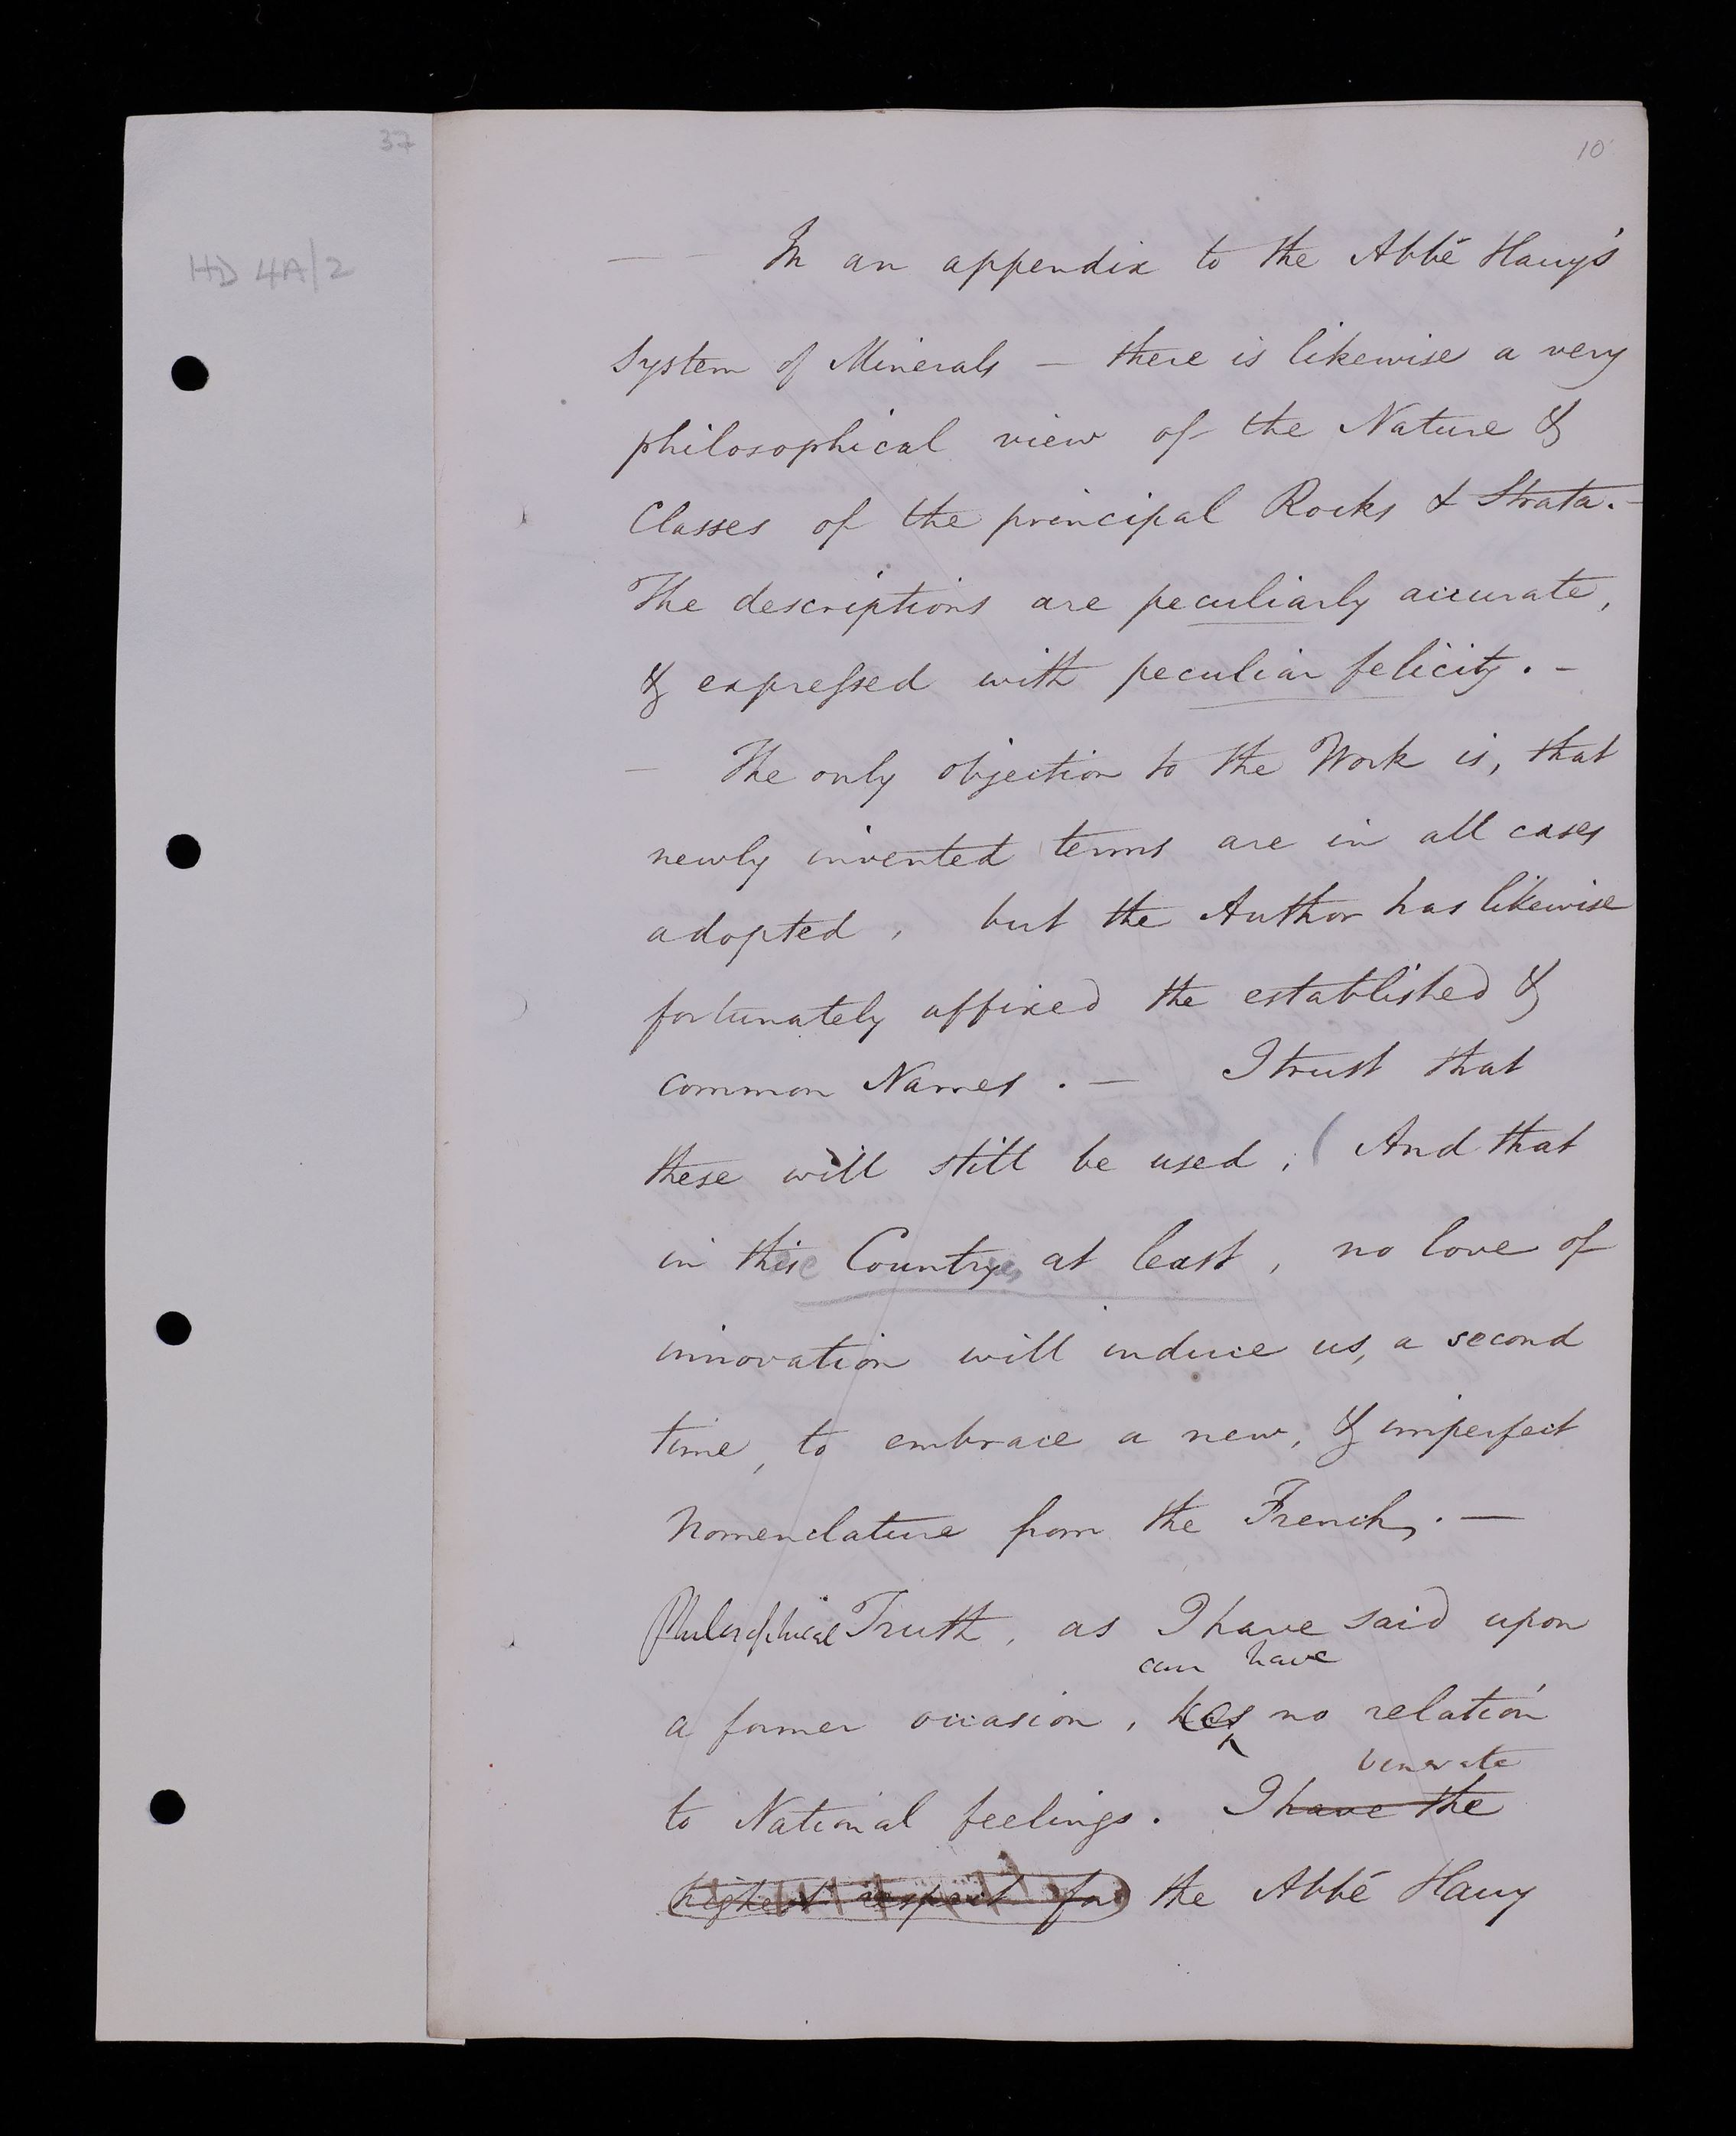 37
10
HD 4A/2
— — In an appendix to the Abbé Hauy's
System of Minerals — there is likewise a very
philosophical view of the Nature &
Classes of the principal Rocks & Strata. —
The descriptions are peculiarly accurate,
& expressed with peculiar felicity. —
— The only objection to the Work is, that
newly invented terms are in all cases
adopted, but the Author has likewise
fortunately affixed the established &
common Names. — I trust that
these will still be used; ( And that
in this Country at least, no love of
innovation will induce us, a second
time, to embrace a new, & imperfect
Nomenclature from the French. —
Philosophical Truth, as I have said upon
can have
a former occasion, has no relation
venerate
to National feelings. I have the
highest respect for the Abbé Hauy